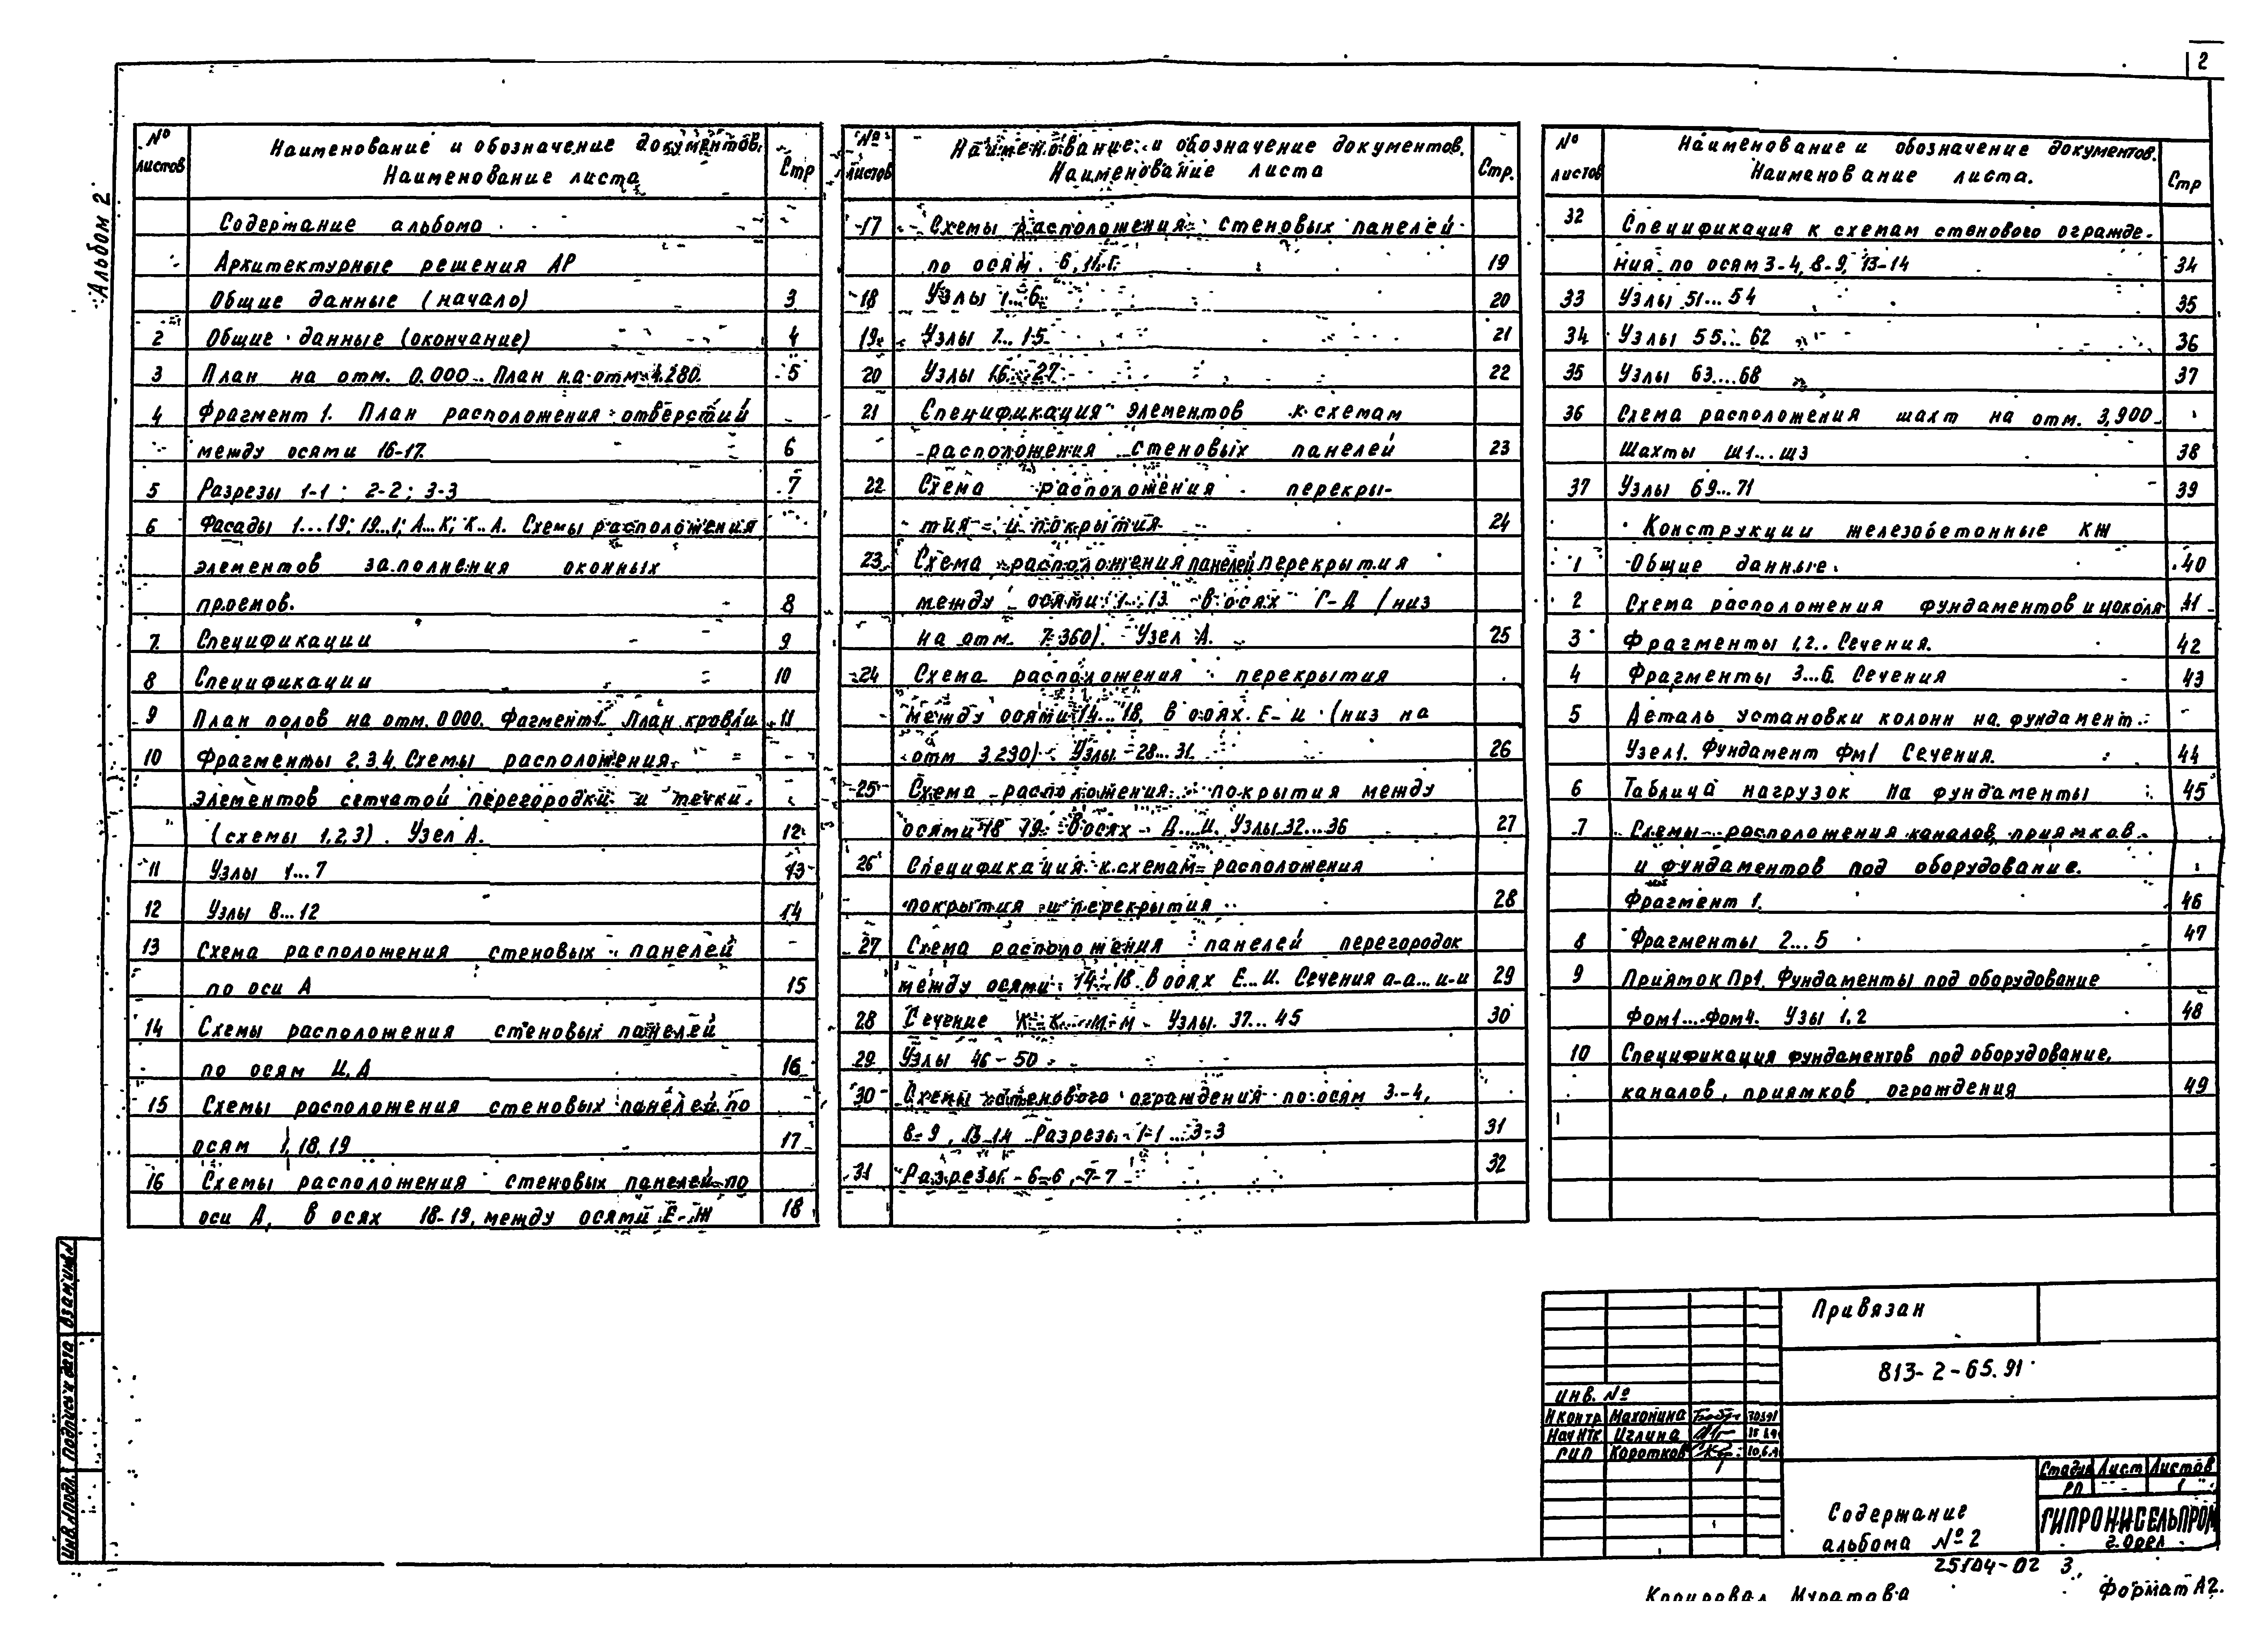 2
Альбом 2
№ листов Наименование и обозначение документов. Наименование листа Стр
Содержание альбома
Архитектурные решения АР
Общие данные (начало) 3
2 Общие данные (окончание) 4
3 План на отм. 0.000. План на отм 4.280. 5
4 Фрагмент 1. План расположения отверстий
между осями 16-17. 6
5 Разрезы 1-1; 2-2; 3-3 7
6 Фасады 1...19; 19...1; А...К; К...А. Схемы расположения
элементов заполнения оконных
проемов. 8
7. Спецификации 9
8 Спецификации 10
9 План полов на отм. 0000. Фагмент1. План кровли 11
10 Фрагменты 2.3.4. Схемы расположения
элементов сетчатой перегородки и течки.
(схемы 1,2,3). Узел А. 12
11 Узлы 1...7 13
12 Узлы 8...12 14
13 Схема расположения стеновых панелей
по оси А 15
14 Схемы расположения стеновых панелей
по осям И, Д 16
15 Схемы расположения стеновых панелей по
осям 1, 18, 19 17
16 Схемы расположения стеновых панелей по
оси Д, в осях 18-19, между осями Е-Ж 18
№ листов Наименование и обозначение документов. Наименование листа Стр.
17 Схемы расположения стеновых панелей
по осям 6, 11, Г. 19
18 Узлы 1...6 20
19 Узлы 7...15 21
20 Узлы 16...27 22
21 Спецификация элементов к схемам
расположения стеновых панелей 23
22 Схема расположения перекры-
тия и покрытия 24
23 Схема расположения панелей перекрытия
между осями 1...13 в осях Г-Д (низ
на отм. 7.360). Узел А. 25
24 Схема расположения перекрытия
между осями 14...18, в осях Е-И (низ на
отм 3.230). Узлы 28...31. 26
25 Схема расположения покрытия между
осями 18 19 в осях Д...И. Узлы 32...36 27
26 Спецификация к схемам расположения
покрытия и перекрытия 28
27 Схема расположения панелей перегородок
между осями 14-18 в осях Е...И. Сечения а-а...и-и 29
28 Сечение К-К...М-М Узлы 37...45 30
29 Узлы 46-50
30 Схемы стенового ограждения по осям 3-4,
8-9, 13-14 Разрезы 1-1...3-3 31
31 Разрезы 6-6, 7-7 32
№ листов Наименование и обозначение документов. Наименование листа. Стр
32 Спецификация к схемам стенового огражде-
ния по осям 3-4, 8-9, 13-14 34
33 Узлы 51...54 35
34 Узлы 55...62 36
35 Узлы 63...68 37
36 Схема расположения шахт на отм. 3,900
Шахты Ш1...Ш3 38
37 Узлы 69...71 39
Конструкции железобетонные КЖ
1 Общие данные. 40
2 Схема расположения фундаментов и цоколя 41
3 Фрагменты 1,2.. Сечения. 42
4 Фрагменты 3...6. Сечения 43
5 Деталь установки колонн на фундамент.
Узел 1. Фундамент Фм1 Сечения. 44
6 Таблица нагрузок на фундаменты 45
7 Схемы расположения каналов, приямков
и фундаментов под оборудование.
Фрагмент 1. 46
8 Фрагменты 2...5 47
9 Приямок Пр1. Фундаменты под оборудование
Фом1...Фом4. Узы 1,2 48
10 Спецификация фундаментов под оборудование,
каналов, приямков ограждения 49
Привязан
813-2-65.91
Инв. №
Н контр Махонина
Нач НТК Иглина
ГИП Коротков
Стадия Лист Листов
РП 1
Содержание
альбома №2
ГИПРОНИСЕЛЬПРОМ
г. Орел
25104-02 3
Копировал Муратова
Формат А2.
Взам.инв.N
Подпись и дата
Инв.N подл.